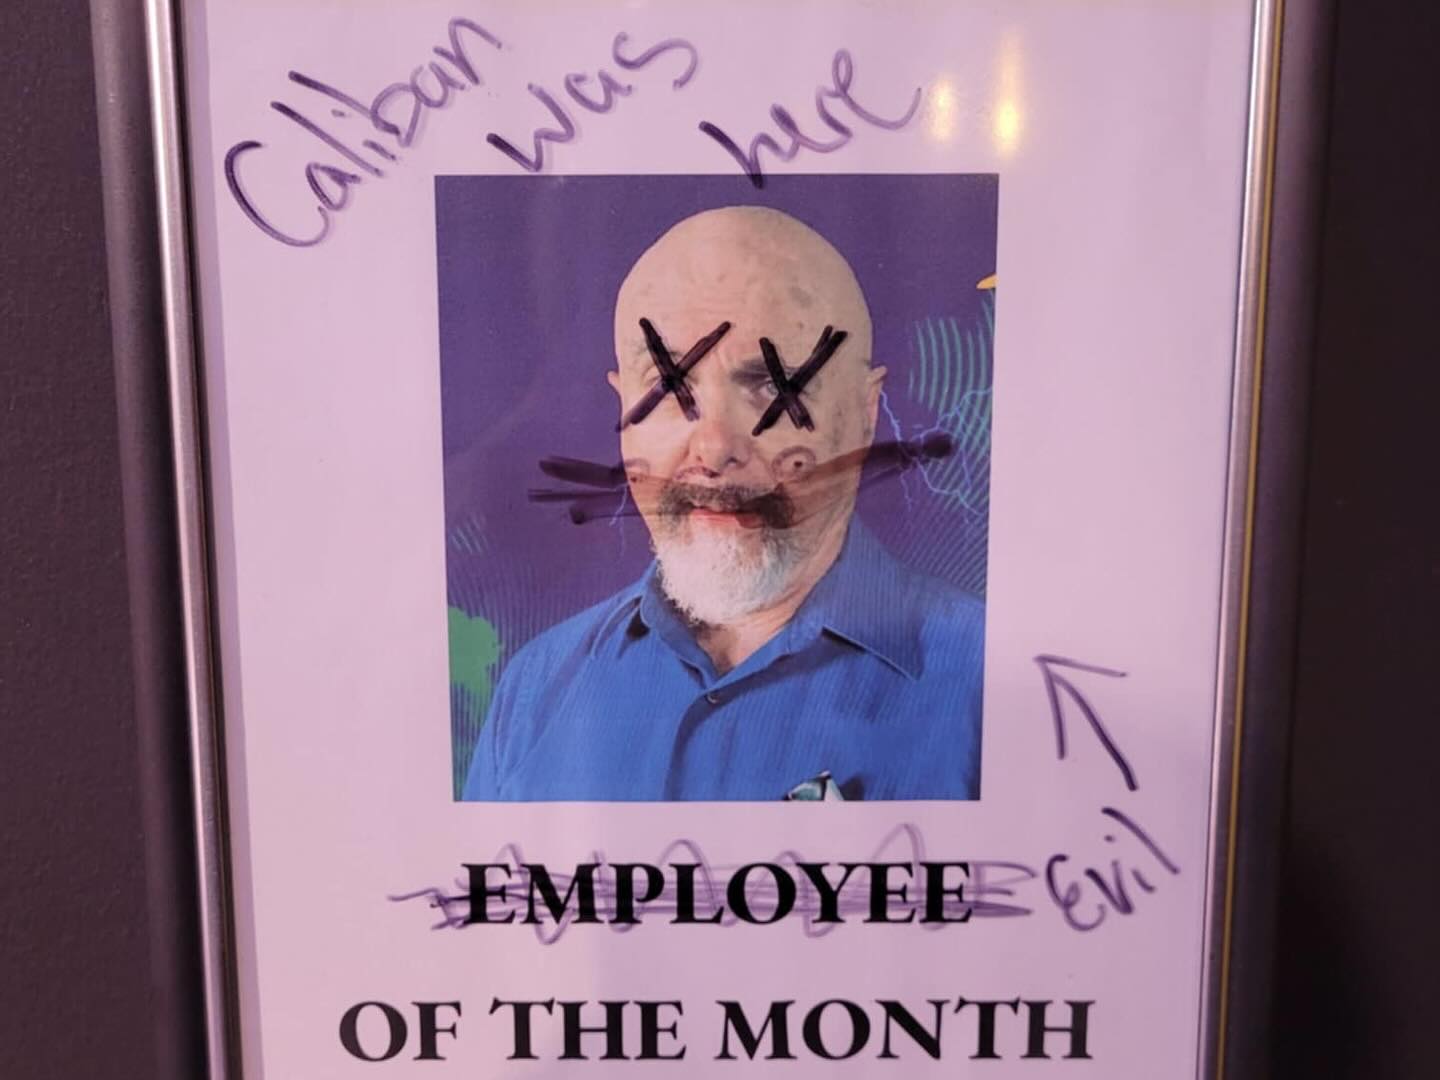 Caliban was here
Evil
EMPLOYEE
OF THE MONTH